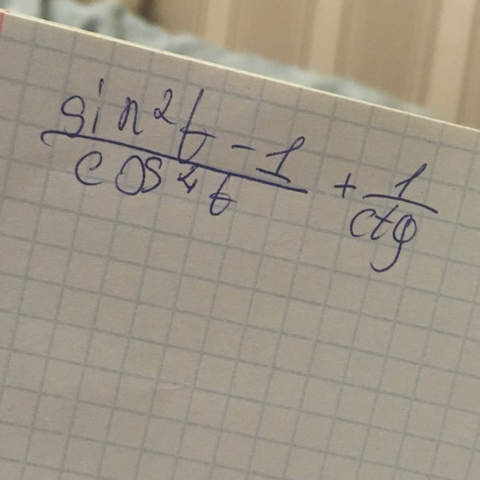 sin²t - 1 + 1
cos²t ctg